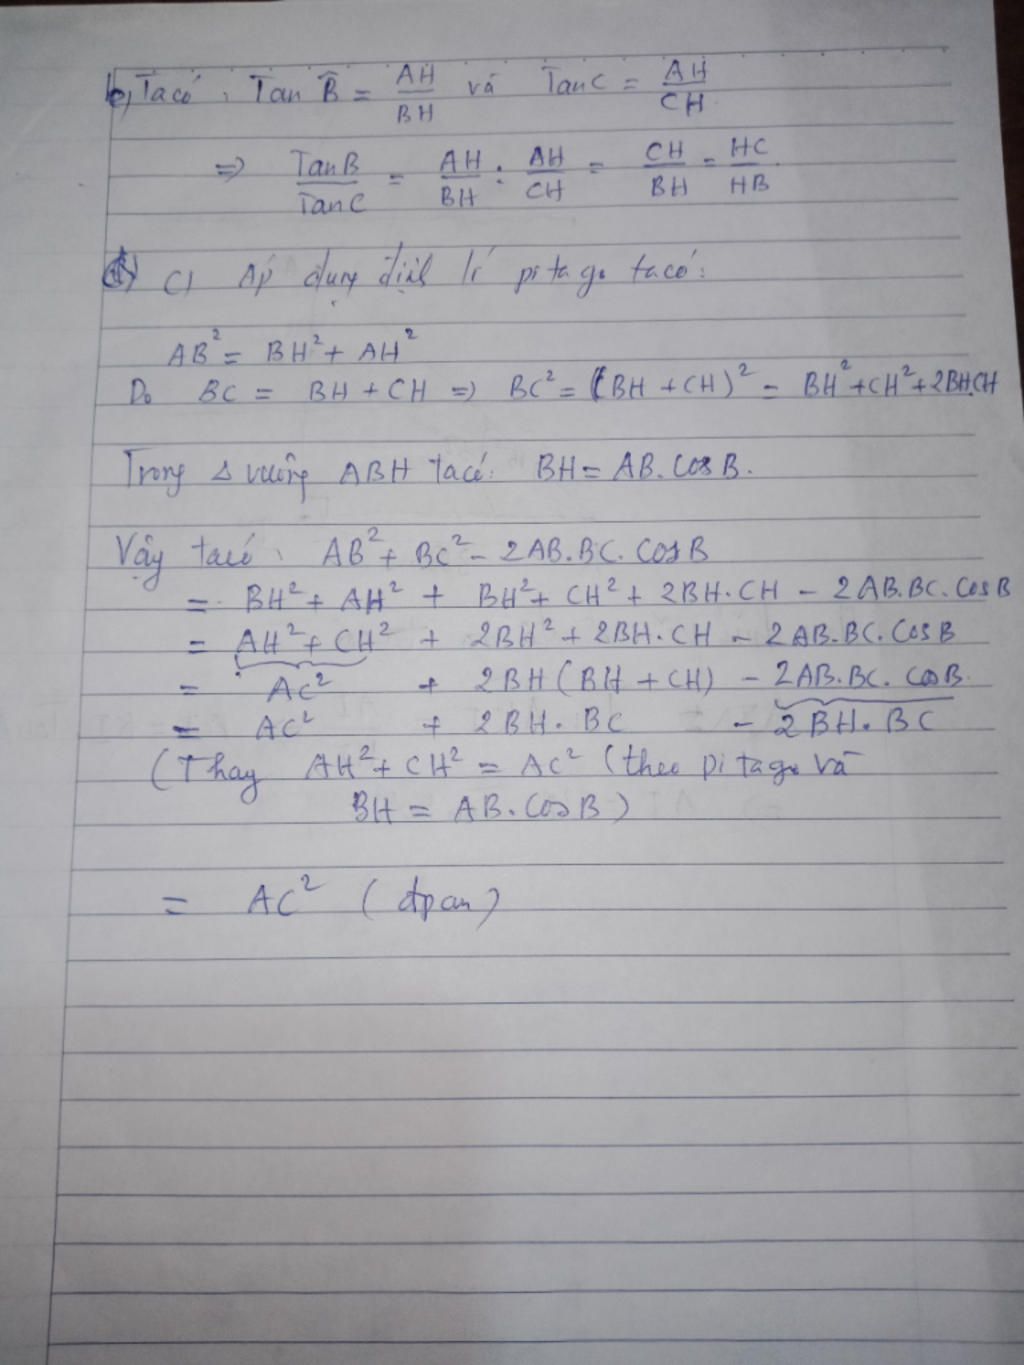 b) Ta có: Tan B̂ = AH/BH và Tan C = AH/CH
=> TanB/TanC = AH/BH : AH/CH = CH/BH = HC/HB.
c) Áp dụng định lí pitago ta có:
AB² = BH² + AH²
Do BC = BH + CH => BC² = (BH + CH)² = BH² + CH² + 2BH.CH
Trong Δ vuông ABH ta có: BH = AB. Cos B.
Vậy ta có: AB² + BC² - 2AB.BC.CosB
= BH² + AH² + BH² + CH² + 2BH.CH - 2AB.BC.CosB
= AH² + CH² + 2BH² + 2BH.CH - 2AB.BC.CosB
= AC² + 2BH(BH + CH) - 2AB.BC.CosB.
= AC² + 2BH.BC - 2BH.BC
(Thay AH² + CH² = AC² (theo pitago và
BH = AB.CosB)
= AC² (đpcm)